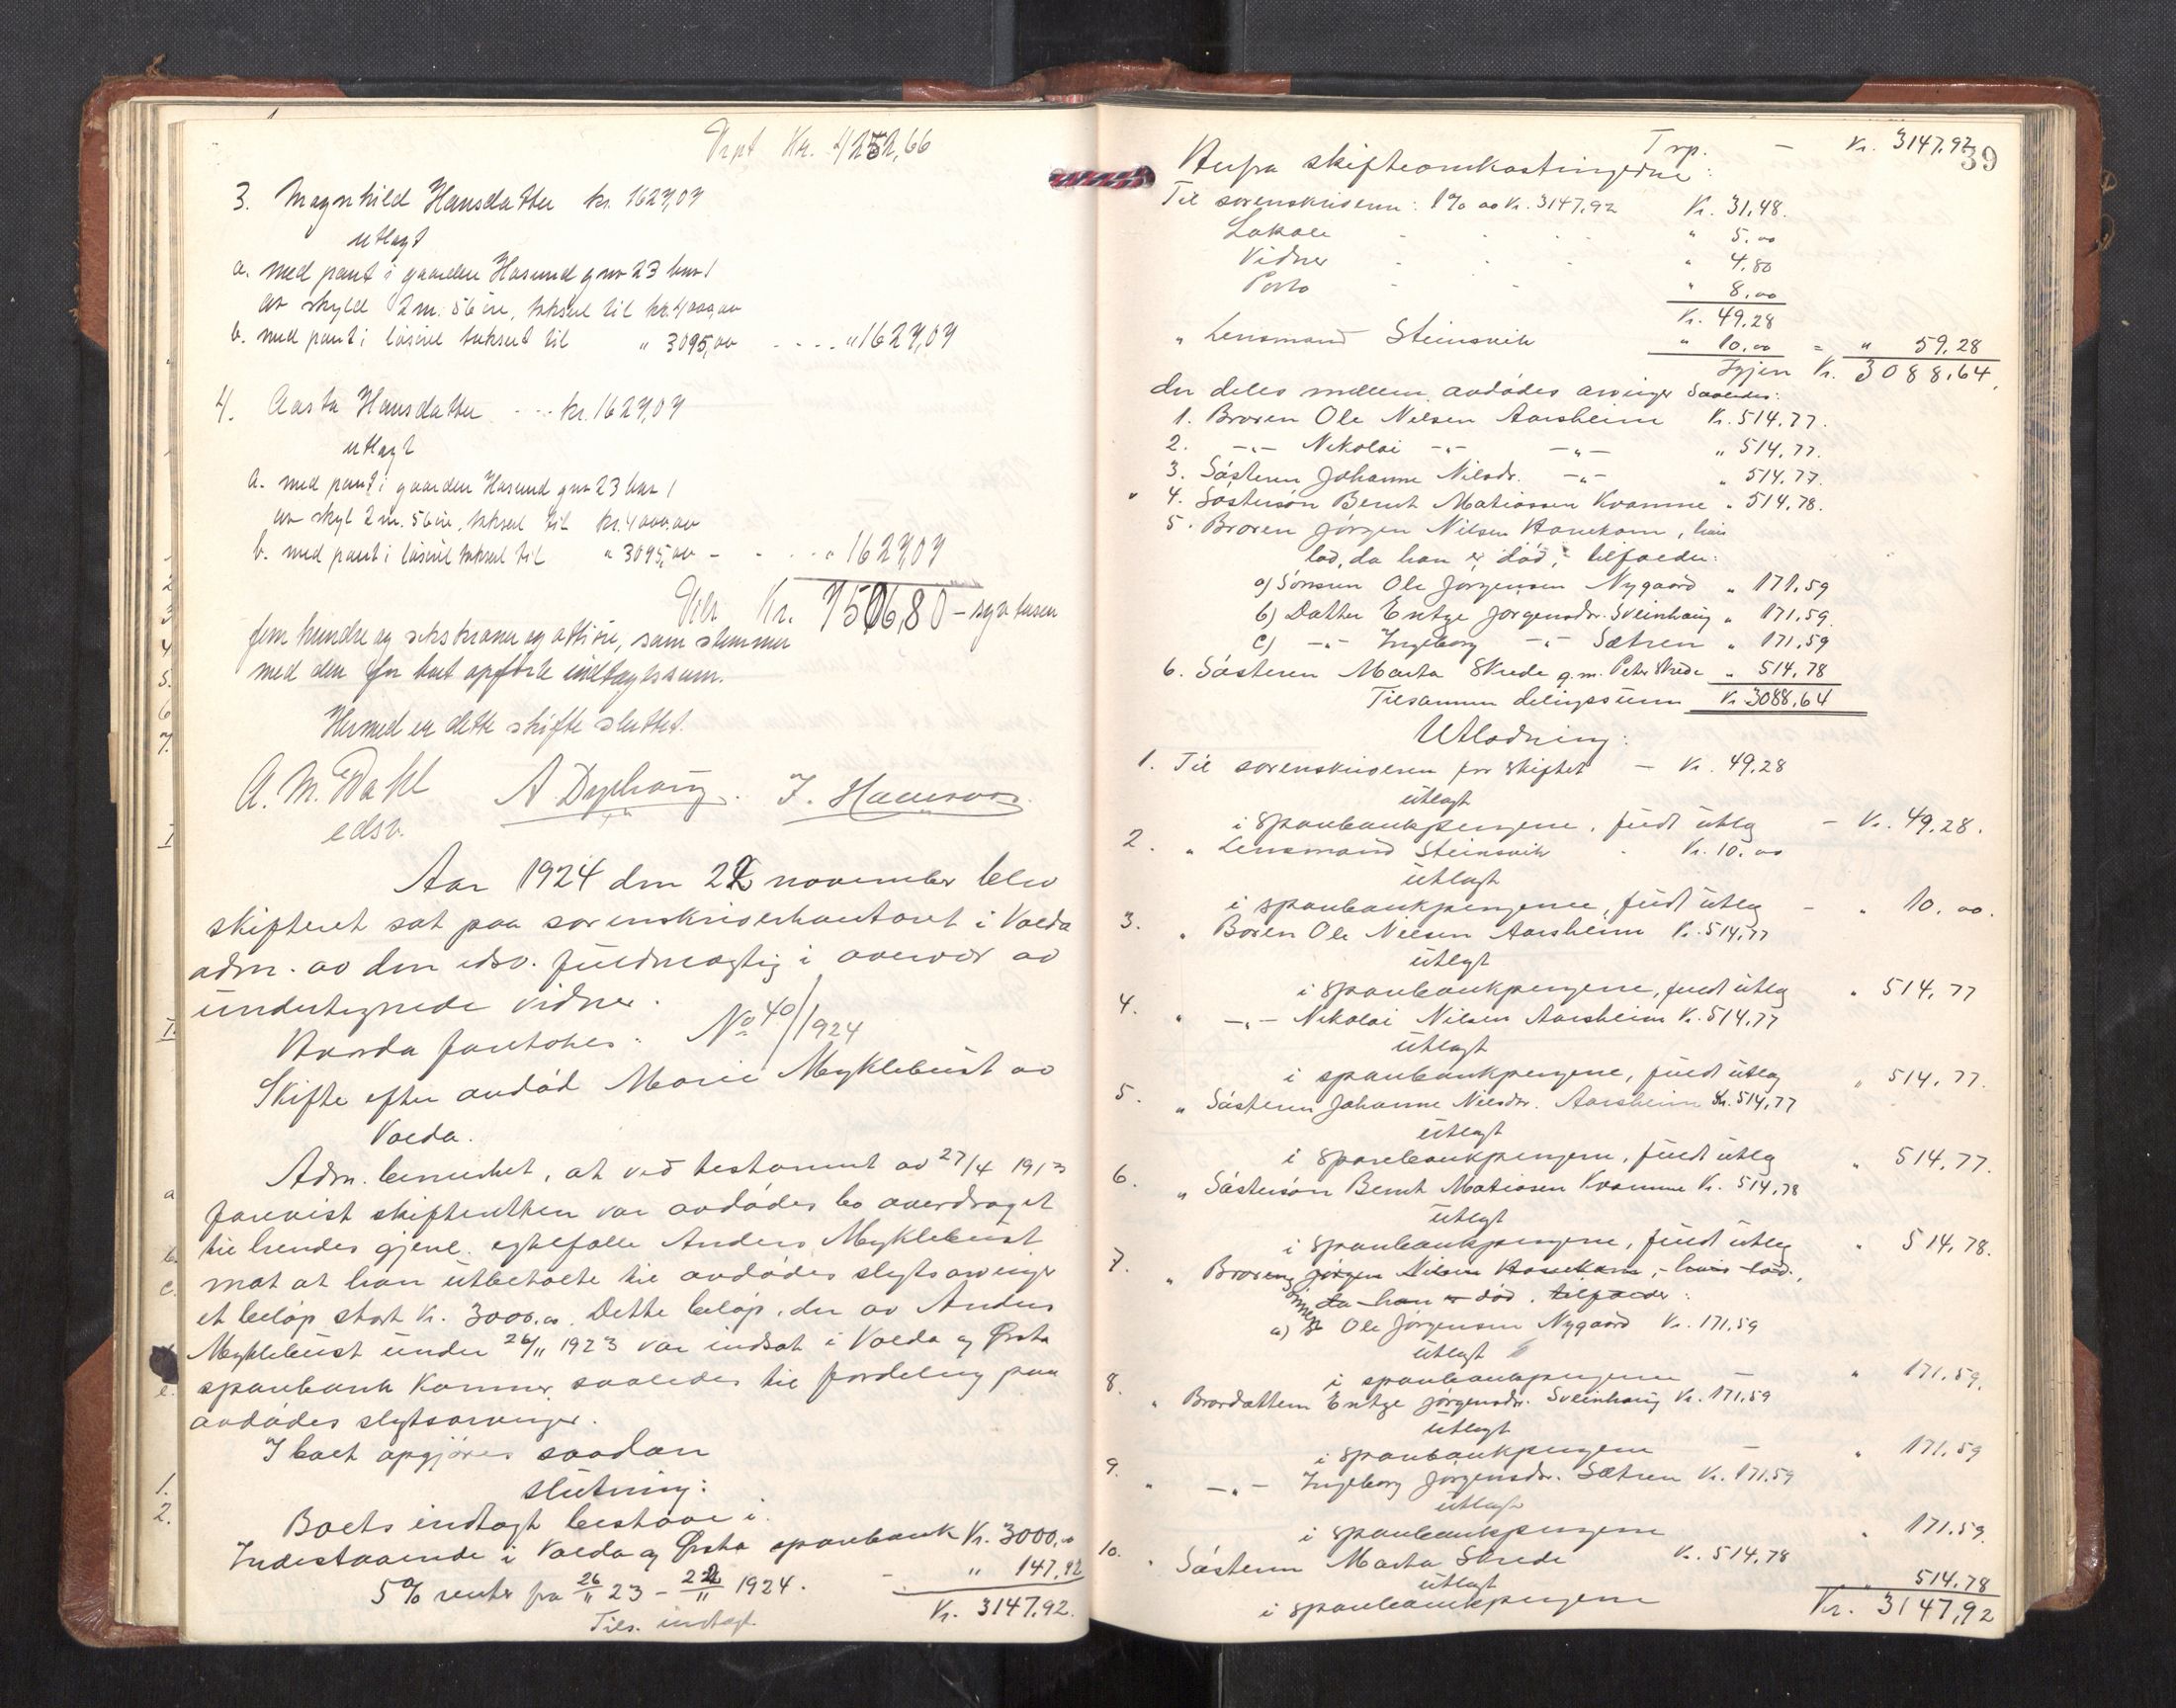 Trpt Kr. 4252,66
3. Magnhild Hansdatter kr. 1627,07
utlagt
a. med pant i gaarden Hasund gnr 23 bnr 1
av skyld 2 m. 56 øre, takseret til kr. 4000,00
b. med pant i løsøre takseret til " 3095,00 - - - - " 1627,07
4. Aasta Hansdatter - - - kr. 1627,07
utlagt
a. med pant i gaarden Hasund gnr 23 bnr 1
av skyld 2 m. 56 øre, takseret til kr. 4000,00
b. med pant i løsøre takseret til " 3095,00 - - - " 1627,07
Tils Kr. 7506,80 - syv tusen
fem hundre og seks kroner og otti øre, som stemmer
med den for boet opførte indtægtssum.
Hermed er dette skifte sluttet.
A. M. Dahl A. Dyphaug. J.
edsv.
Aar 1924 den 22 november blev
skifteret sat paa sorenskriverkontoret i Volda
adm. av den edsv. fuldmægtig i overvær av
undertegnede vidner.
Hvorda foretokes: No 40/1924
Skifte efter avdød Marie Myklebust av
Volda.
Adm. bemerket, at ved testament av 27/4 1913
forevist skifteretten var avdødes bo overdraget
til hendes gjenl. egtefælle Anders Myklebust
mot at han utbetalte til avdødes slegtsarvinger
et beløp stort Kr. 3000,00. Dette beløp, der av Anders
Myklebust under 26/11 1923 var indsat i Volda og Ørsta
sparebank kommer saaledes til fordeling paa
avdødes slegtsarvinger.
I boet opgjøres saadan
slutning:
Boets indtægt bestaar i:
Indestaaende i Volda og Ørsta sparebank Kr. 3000,00
5% renter fra 26/11 23 - 22/11 1924. - " 147,92
Tils. indtægt Kr. 3147,92.
39
Trp. - Kr. 3147,92
Herfra skifteomkostningerne:
Til sorenskriveren: 1% av Kr. 3147,92 Kr. 31,48.
Lokale " 5,00
Vidner " 4,80
Porto " 8,00
Kr. 49,28
" Lensmand Steinsvik " 10,00 = " 59,28
Igjen Kr. 3088,64.
der deles mellem avdødes arvinger saaledes:
1. Broren Ole Nilsen Aarsheim Kr. 514,77.
2. -"- Nikolai -"- -"- " 514,77.
3. Søsteren Johanne Nilsdr. -"- " 514,77.
4. Søstersøn Bernt Matiassen Kvamme " 514,78.
5. Broren Jørgen Nilsen Hovekam, hvis
lod, da han er død, tilfalder:
a) Sønnen Ole Jørgensen Nygaard " 171,59
b) Datter Entze Jørgensdr. Sveinhaug " 171,59.
c) -"- Ingeborg -"- Sætren " 171,59
6. Søsteren Marta Skrede g.m. Peter Skrede " 514,78
Tilsammen delingssum Kr. 3088,64
Utlodning:
1. Til sorenskriveren for skiftet - Kr. 49,28
utlagt
i sparebankpengene, fuldt utlæg - Kr. 49,28.
2. " Lensmand Steinsvik - Kr. 10,00
utlagt
i sparebankpengene, fuldt utlæg - " 10,00.
3. " Boren Ole Nilsen Aarsheim Kr. 514,77
utlagt
i sparebankpengene, fuldt utlæg " 514,77
4. " -"- Nikolai Nilsen Aarsheim Kr. 514,77
utlagt
i sparebankpengene, fuldt utlæg " 514,77.
5. " Søsteren Johanne Nilsdr. Aarsheim Kr. 514,77
utlagt
i sparebankpengene, fuldt utlæg " 514,77.
6. " Søstersøn Bernt Matiasen Kvamme Kr. 514,78
utlagt
i sparebankpengene, fuldt utlæg " 514,78.
7. " Broren Jørgen Nilsen Hovekam, hvis lod,
da han er død, tilfalder:
a) Ole Jørgensen Nygaard Kr. 171,59
utlagt
i sparebankpengene - " 171,59.
8. " Brordatteren Entze Jørgensdr. Sveinhaug Kr. 171,59
utlagt
i sparebankpengene - " 171,59
9. " -"- Ingeborg Jørgensdr. Sætren Kr. 171,59
utlagt
i sparebankpengene " 171,59.
10. " Søsteren Marta Skrede Kr. 514,78
utlagt
i sparebankpengene " 514,78
Kr. 3147,92